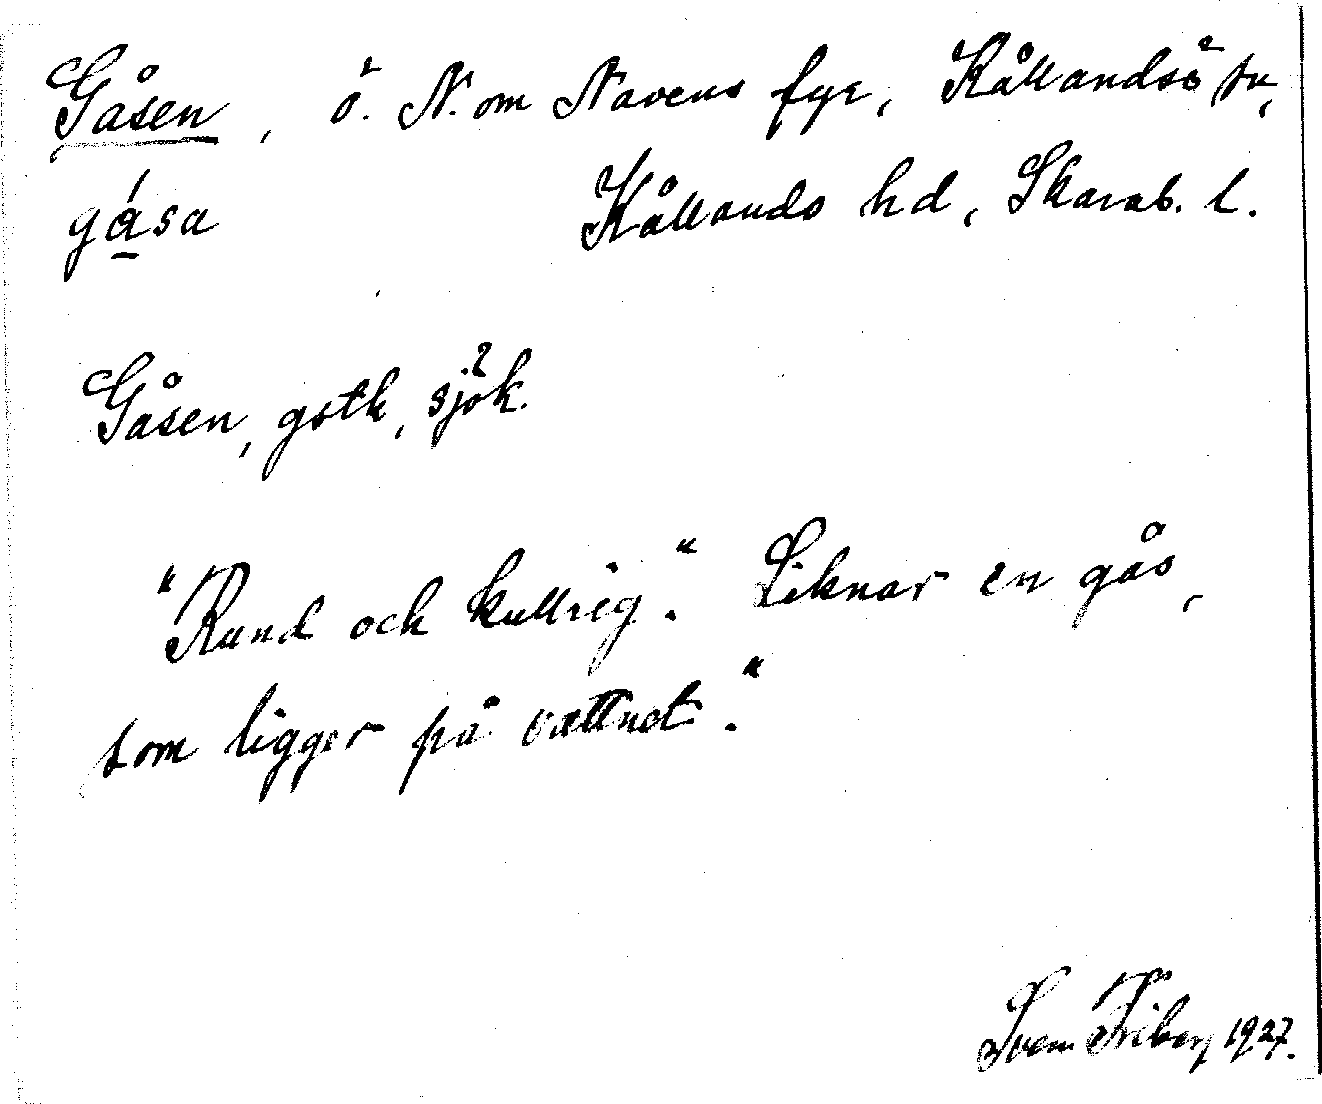 Gåsen, ö. N. om Navens fyr, Kållandsö sn,
gǻsa Kållands hd, Skarab. l.
Gåsen, gstk, sjök.
"Rund och kullrig." Liknar en gås,
som ligger på vattnet."
Sven Friberg 1927.